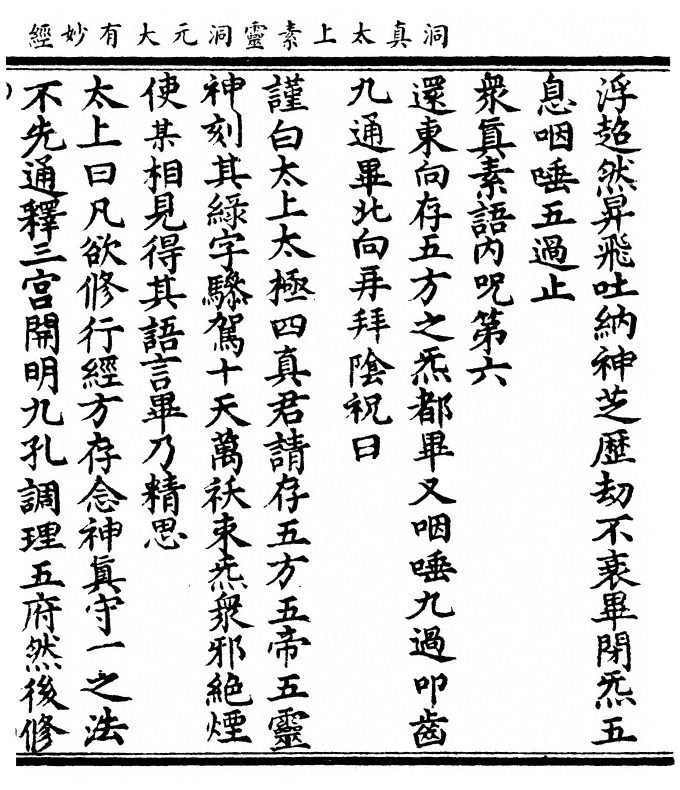 洞真太上素靈洞元大有妙經
浮超然昇飛吐納神芝歷劫不衰畢閉炁五
息咽唾五過止
衆眞素語內呪第六
還東向存五方之炁都畢又咽唾九過叩齒
九通畢北向再拜陰祝曰
謹白太上太極四真君請存五方五帝五靈
神刻其綠字驂駕十天萬祅束炁衆邪絶煙
使某相見得其語言畢乃精思
太上曰凡欲修行經方存念神眞守一之法
不先通釋三宮開明九孔調理五府然後修